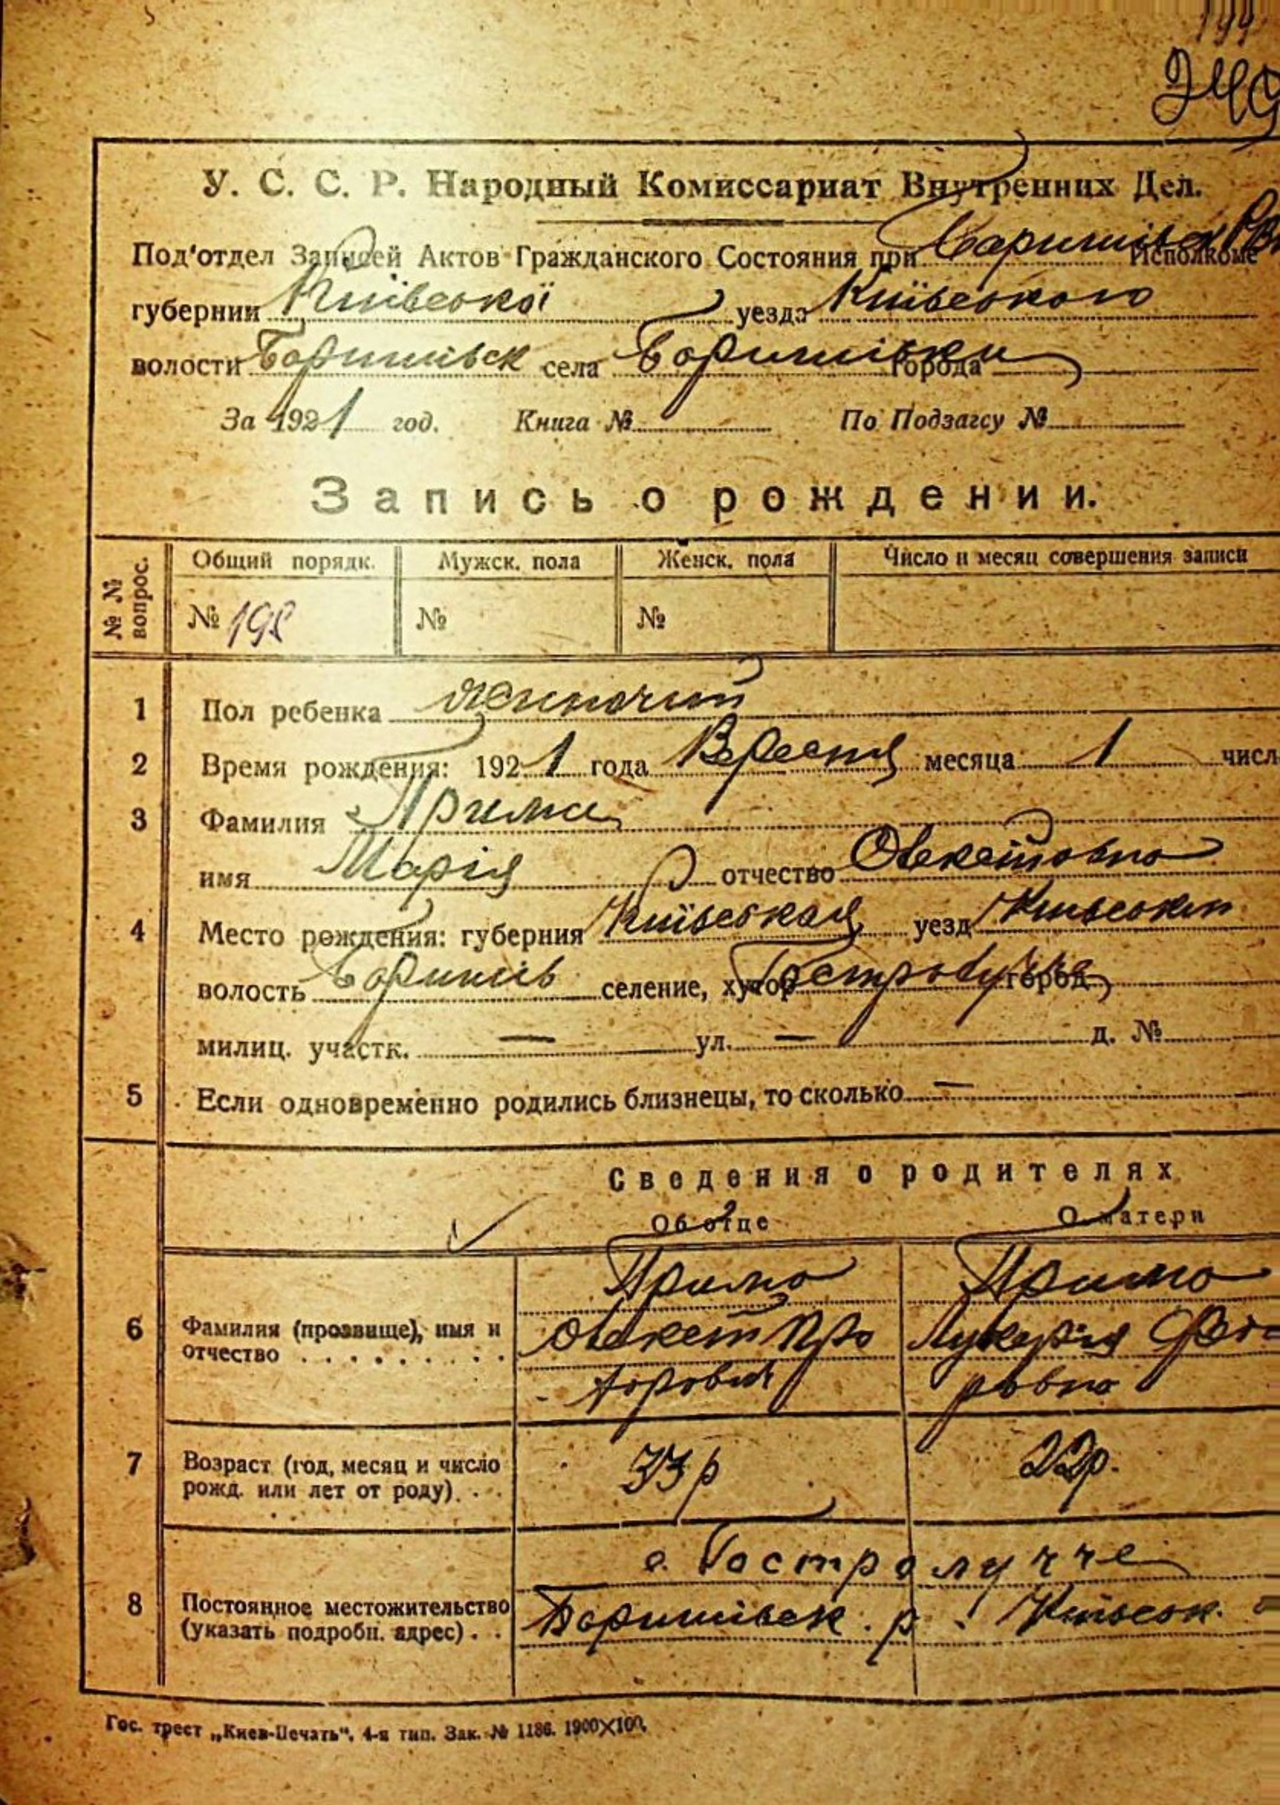 У. С. С. Р. Народный Комиссариат Внутренних Дел.
Под'отдел Записей Актов Гражданского Состояния при Исполкоме
губернии Київської уезда Київського
волости Баришівськ села Баришівки города
За 1921 год. Книга № По Подзагсу №
Запись о рождении.
№№ вопрос. Общий порядк. Мужск. пола Женск. пола Число и месяц совершения записи
№ 198 № №
1 Пол ребенка жиночий
2 Время рождения: 1921 года Вересня месяца 1 числ
3 Фамилия Прима
имя Марія отчество
4 Место рождения: губерния Київская уезд
волость Баришів селение, хутор Гостролучче город
милиц. участк. — ул. — д. №
5 Если одновременно родились близнецы, то сколько —
Сведения о родителях
Об отце О матери
Прима Прима
6 Фамилия (прозвище), имя и отчество Лукерія
7 Возраст (год, месяц и число рожд. или лет от роду) 33 р 22 р.
с. Гостролучче
8 Постоянное местожительство (указать подробн. адрес) Баришівськ. р. Київськ.
Гос. трест „Киев-Печать", 4-я тип. Зак. № 1186. 1900×100.